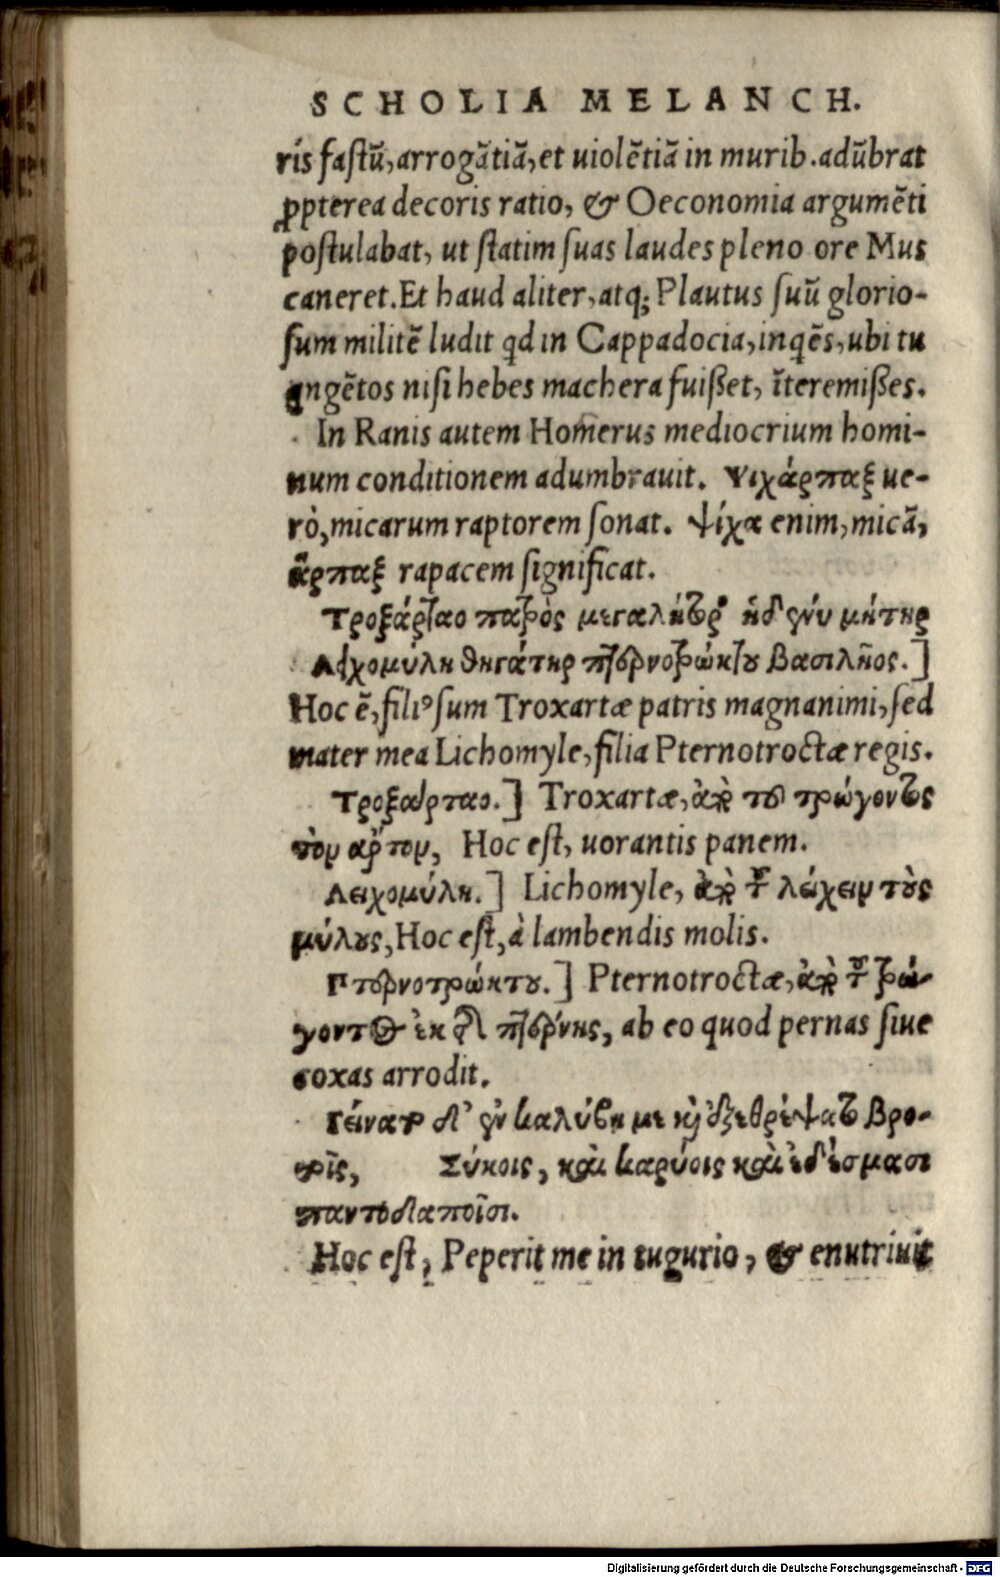 SCHOLIA MELANCH.
ris fastū, arrogātiā, et uiolētiā in murib. adūbrat
ꝓpterea decoris ratio, & Oeconomia argumēti
postulabat, ut statim suas laudes pleno ore Mus
caneret. Et haud aliter, atq; Plautus suū glorio-
sum militē ludit qd in Cappadocia, inqēs, ubi tu
qngētos nisi hebes machera fuisset, īteremisses.
In Ranis autem Homerus mediocrium homi-
num conditionem adumbrauit. Ψιχάρπαξ ue-
rò, micarum raptorem sonat. ψίχα enim, micā,
ἅρπαξ rapacem significat.
Τροξάρταο πατρὸς μεγαλήτορος ἠδ' μήτηρ
Λειχομύλη θηγάτηρ πτερνοτρώκτου βασιλῆος.]
Hoc ē, filiꝰ sum Troxartæ patris magnanimi, sed
mater mea Lichomyle, filia Pternotroctæ regis.
Τροξάρταο.] Troxartæ, ἀπὸ τοῦ τρώγοντος
τὸν ἄρτον, Hoc est, uorantis panem.
Λειχομύλη.] Lichomyle, ἀπὸ τοῦ λείχειν τοὺς
μύλους, Hoc est, à lambendis molis.
Πτερνοτρώκτου.] Pternotroctæ, ἀπὸ τοῦ τρώ-
γοντος ἐκ τῆς πτέρνης, ab eo quod pernas siue
coxas arrodit.
Γείνατο δ' ἐν καλύβῃ με καὶ ἐξεθρέψατο βρο-
Σύκοις, καὶ καρύοις καὶ ἐδέσμασι
παντοδαποῖσι.
Hoc est, Peperit me in tugurio, & enutriuit
Digitalisierung gefördert durch die Deutsche Forschungsgemeinschaft - DFG